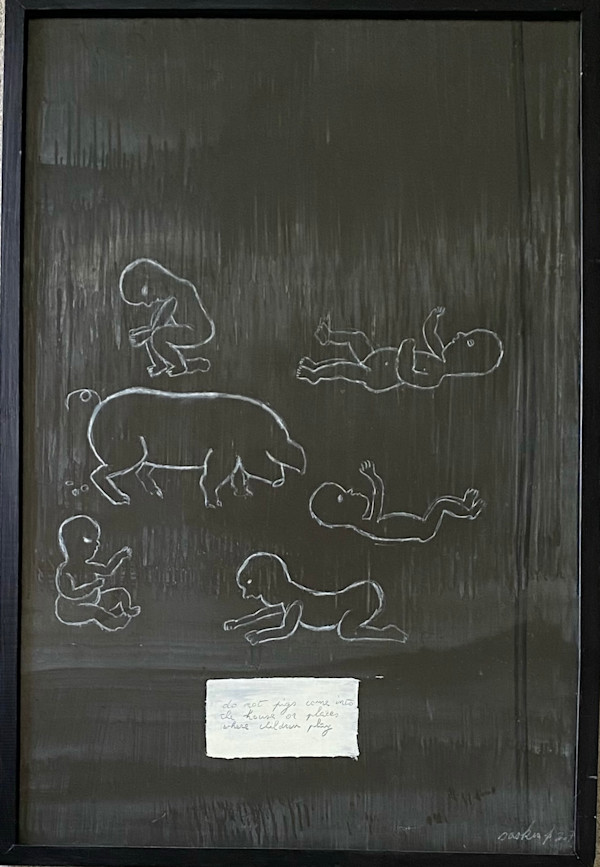 do not pigs come into
the house or places
where children play